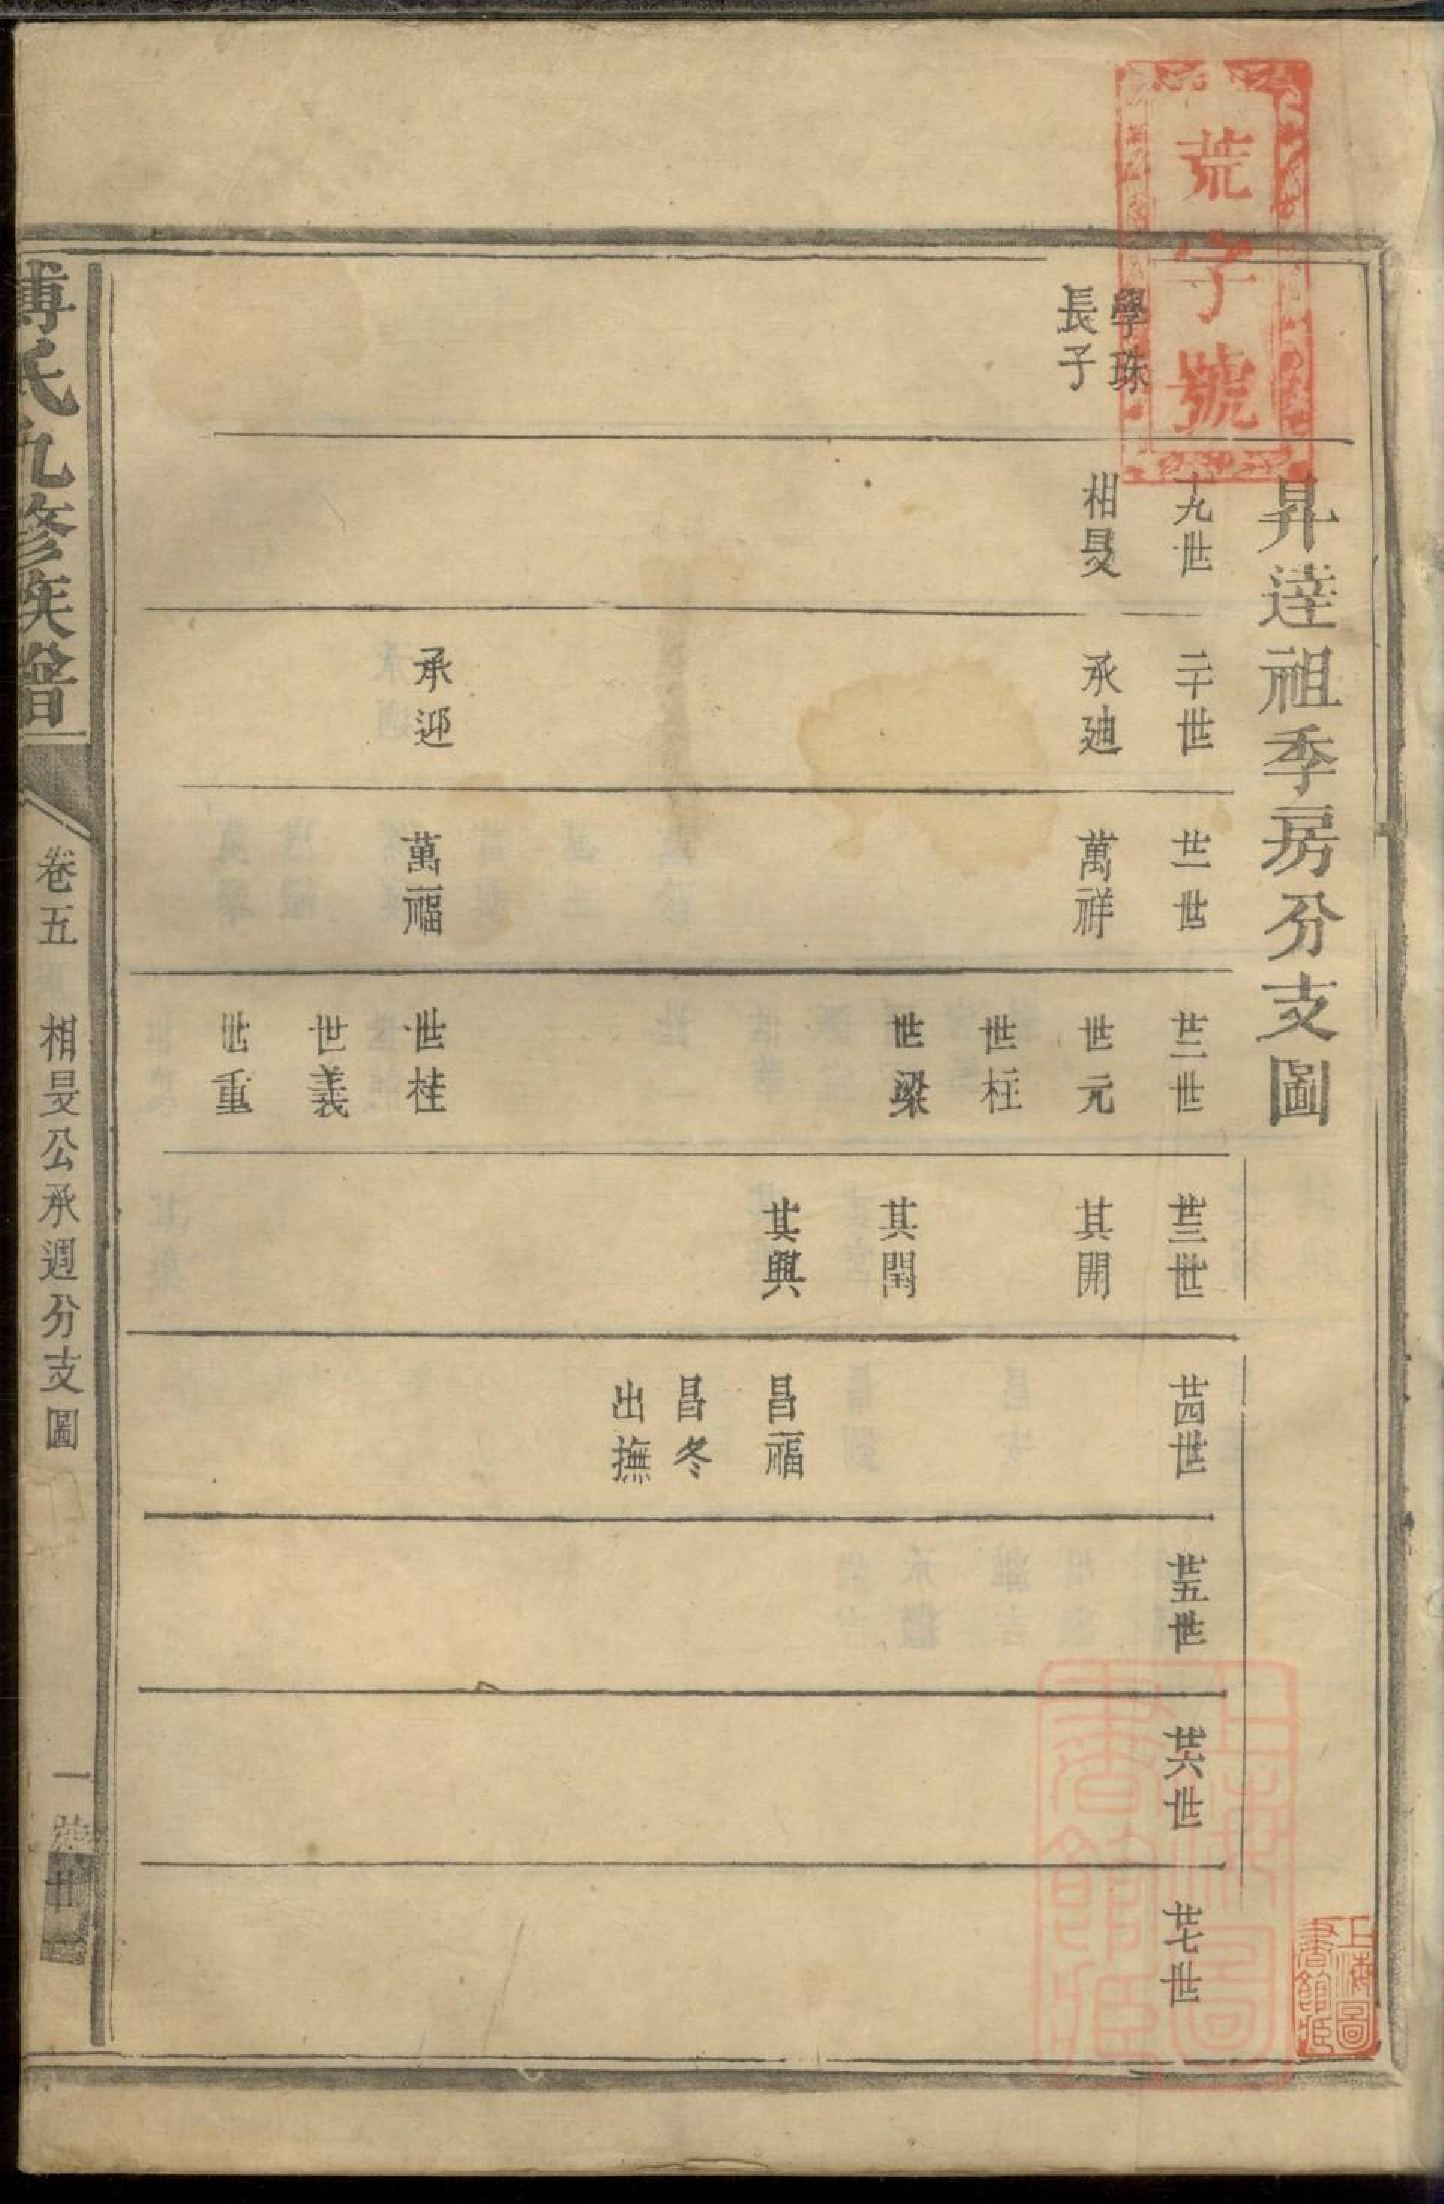 荒字號
昇逹祖季房分支圖
學珠
長子
十九世
相旻
二十世
承廸
承迎
廿一世
萬祥
萬福
廿二世
世元
世柱
世梁
世桂
世義
世重
廿三世
其開
其閏
其興
廿四世
昌福
昌冬
出撫
廿五世
廿六世
廿七世
上海圖
書館臧
上海圖
書館臧
傅氏九修族譜
卷五
相旻公承週分支圖
一